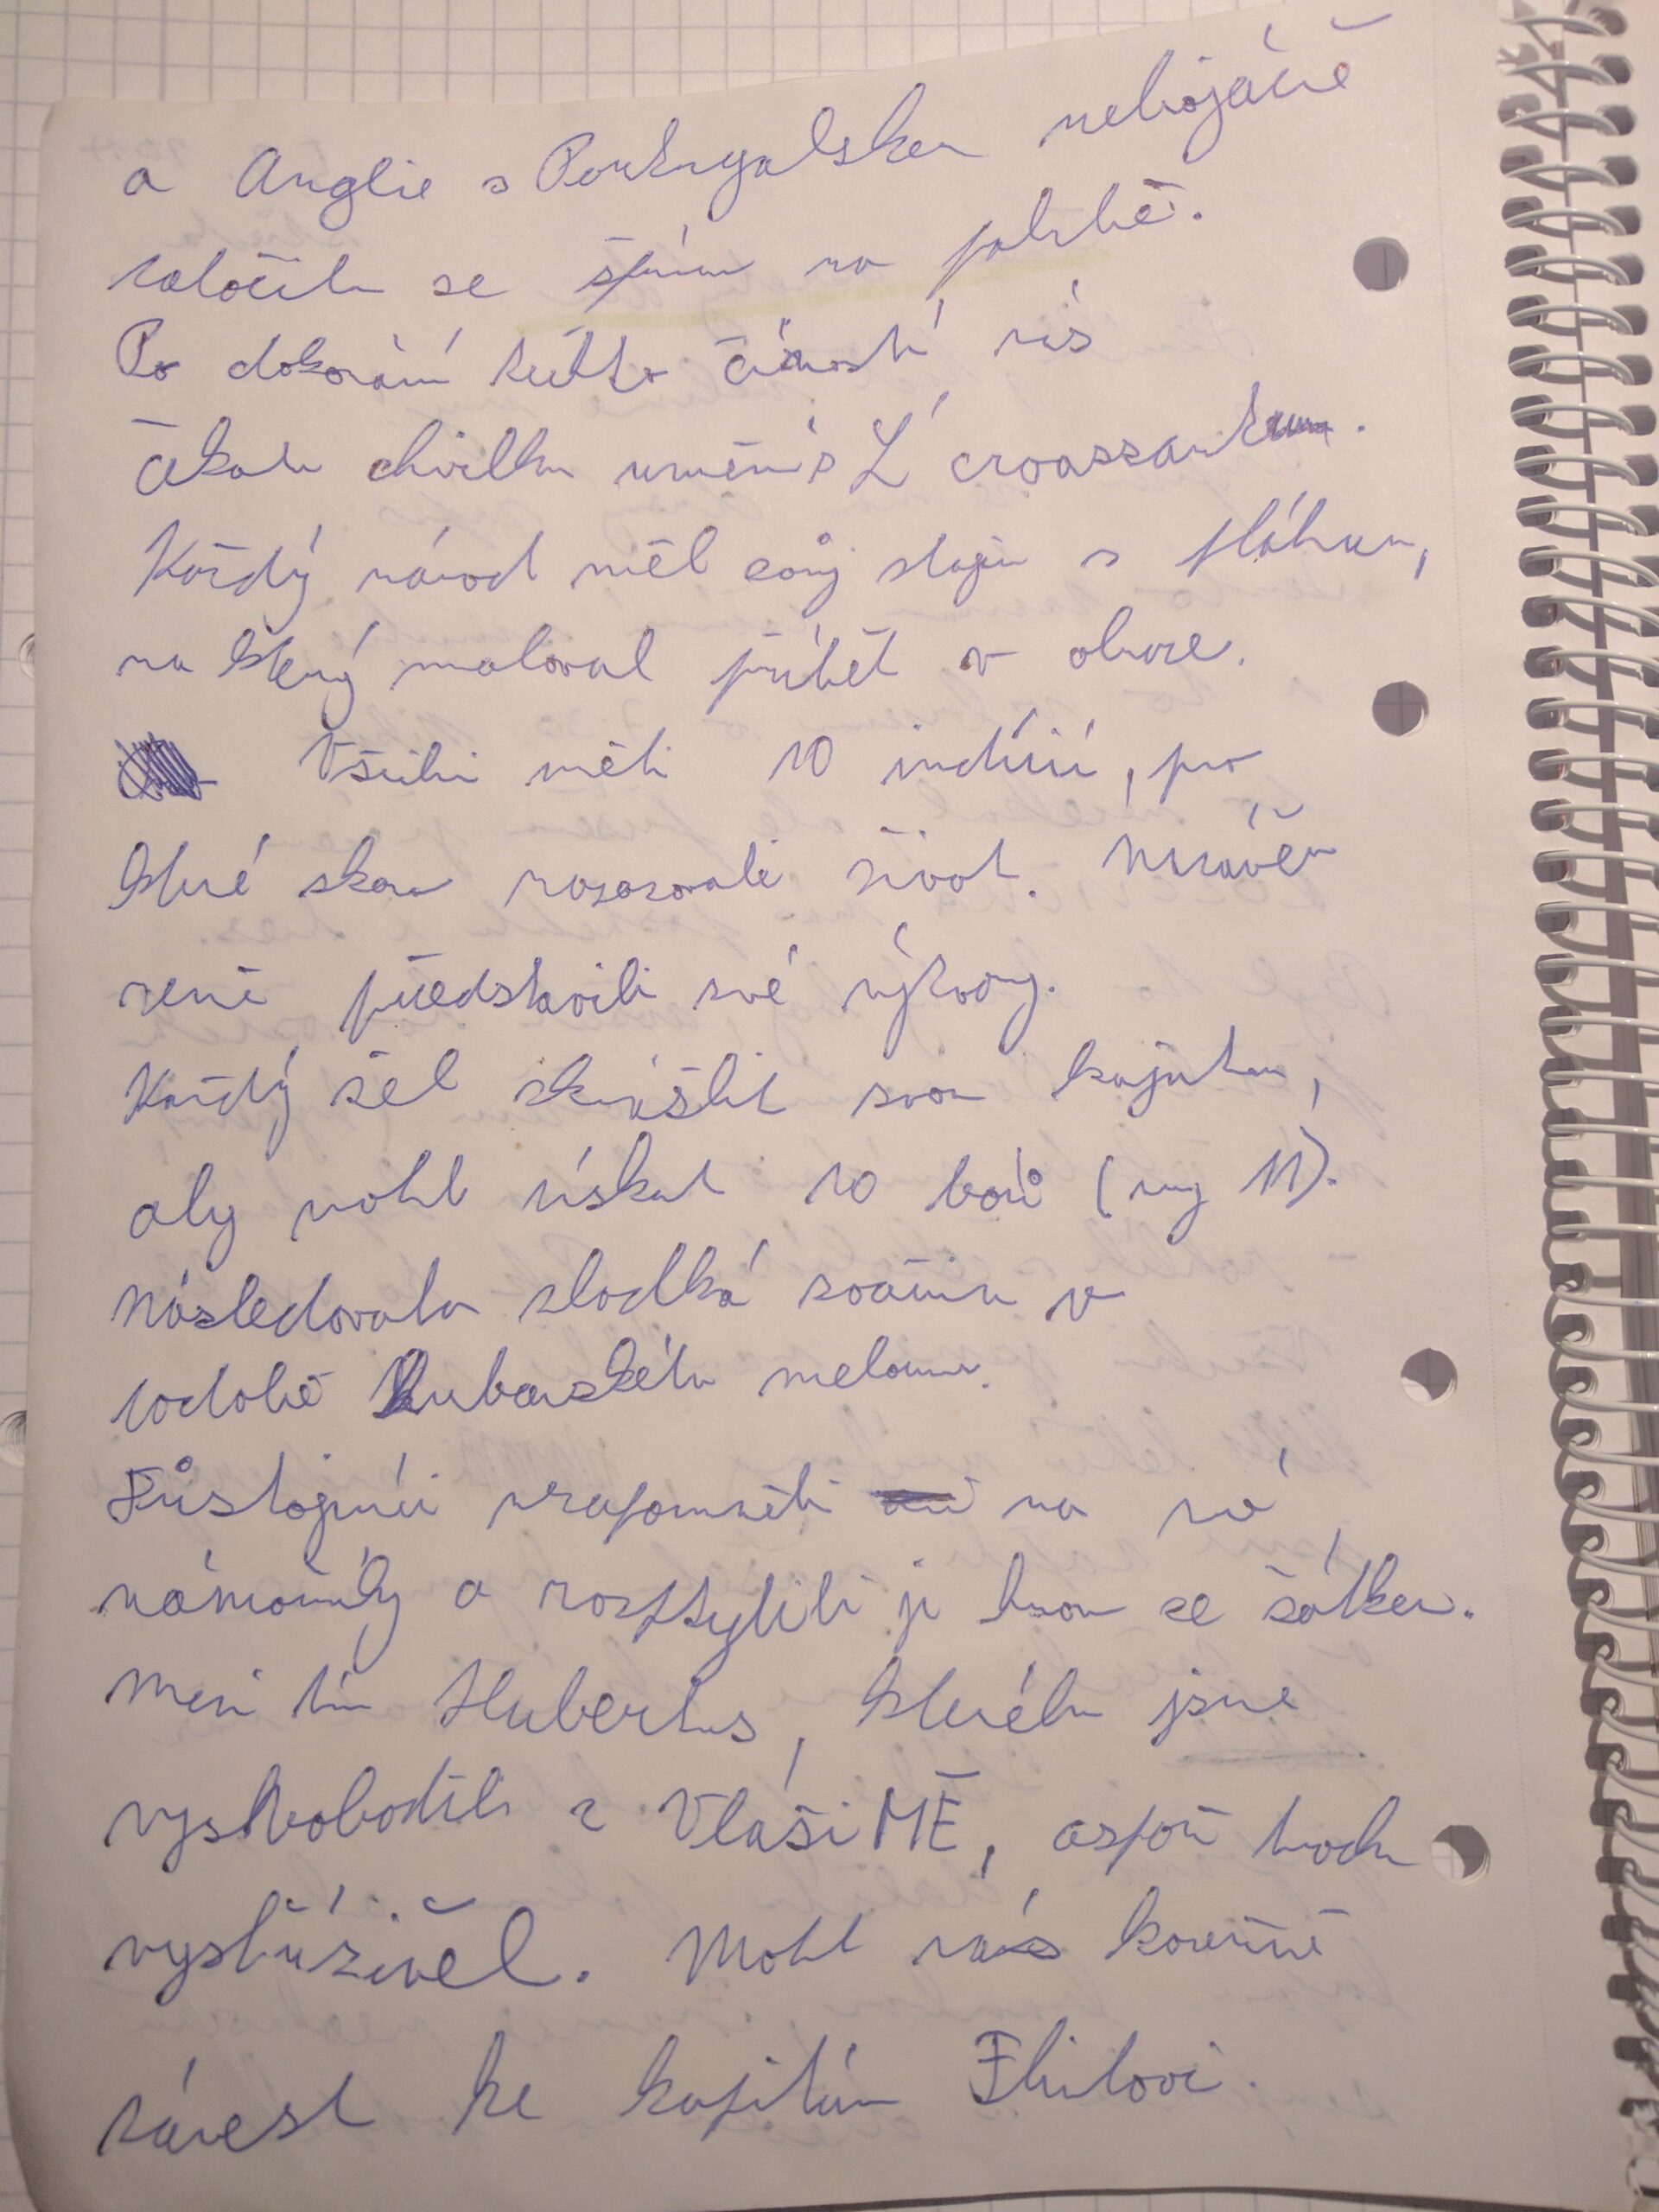 a Anglie s Portugalskem nebojácně
začali se spím na palubě.
Po dokonání této činnosti nás
čekala chvilka umění s L' croassantem.
Každý národ měl svůj stojan s plátnem,
na který maloval příběh v obraze.
Všichni měli 10 indicií, pro
které skoro nasazovali život. Námořní
ceně představili své výtvory.
Každý šel zkrášlit svou kajutu,
aby mohl získat 10 bodů (my 11).
Následovala sladká svačina v
podobě kubánského melounu.
Důstojníci nezapomněli na své
námořníky a rozptýlili je hrou se šátkem.
Mezi tím Hubertus, kterého jsme
vysvobodili z VlašiMĚ, aspoň trochu
vystřízlivěl. Mohl nás konečně
zavést ke kapitánu Flintovi.